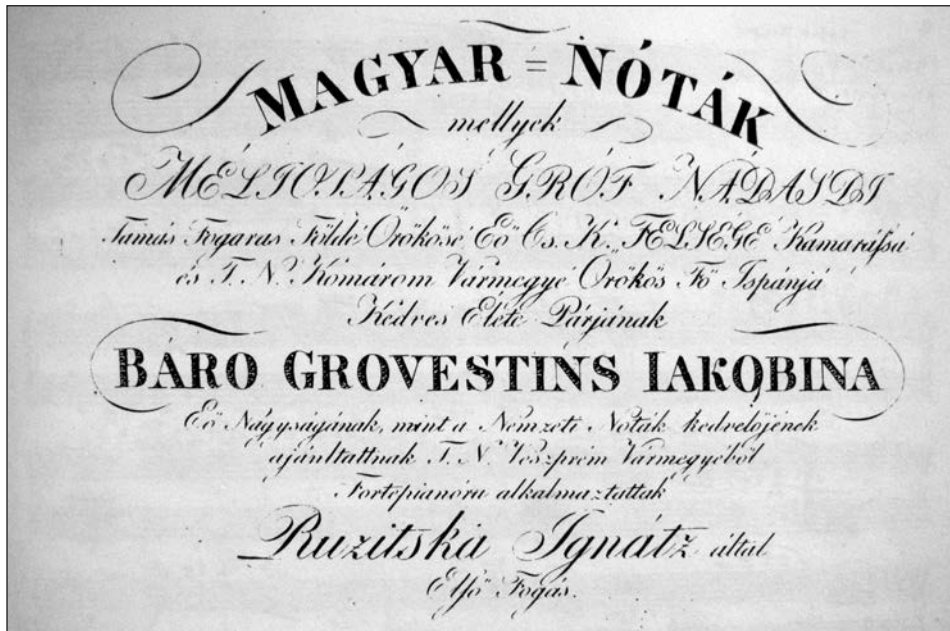 MAGYAR = NÓTÁK
mellyek
MÉLTOSÁGOS GRÓF NÁDASDI
Tamás Fogaras Földe Örököse Eő Cs. K. FELSÉGE Kamarássa
és T. N. Komárom Vármegye Örökös Fő Ispánjá
Kedves Élete Párjának
BÁRO GROVESTINS IAKOBINA
Eő Nagyságának, mint a Nemzeti Noták kedvelőjének
ajánltattnak T. N. Veszprém Vármegyéből
Fortépianóra alkalmaztattak
Ruzitska Ignátz által
Első Fogás.